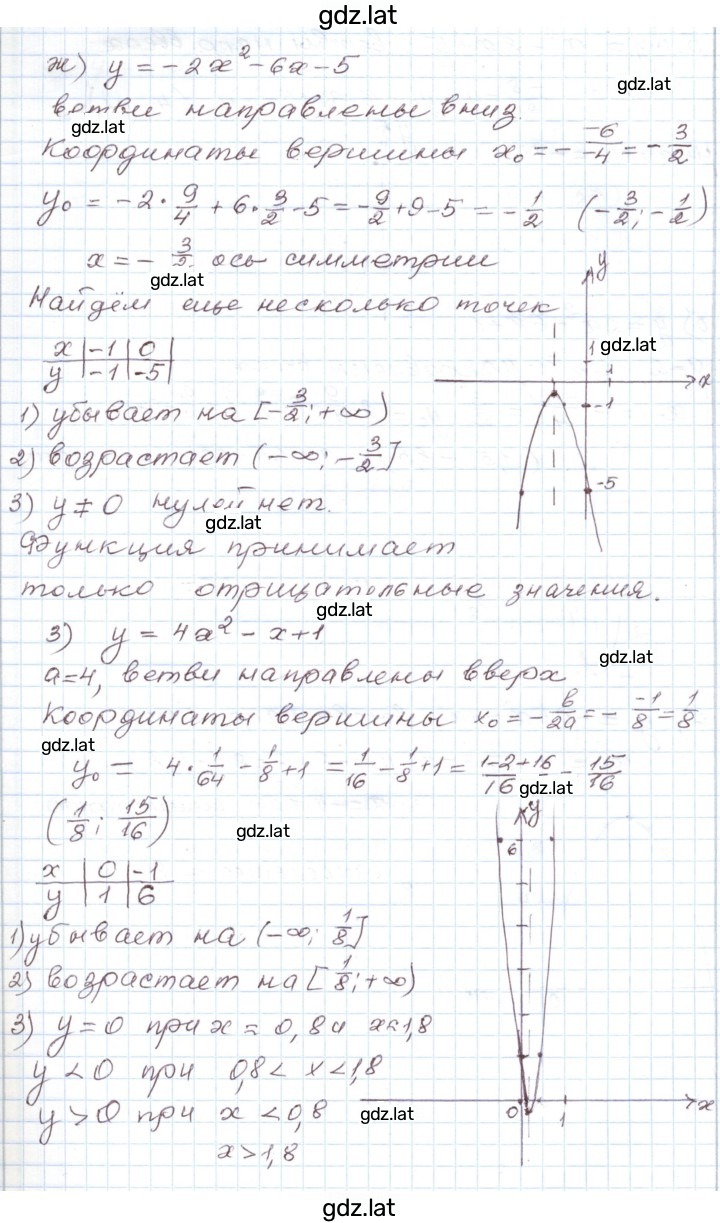 gdz.lat
ж) y = -2x² - 6x - 5
gdz.lat
ветви направлены вниз.
gdz.lat
Координаты вершины x₀ = - -6/-4 = - 3/2
y₀ = -2 · 9/4 + 6 · 3/2 - 5 = - 9/2 + 9 - 5 = - 1/2 (- 3/2; - 1/2)
x = - 3/2 ось симметрии
gdz.lat
Найдём еще несколько точек
x | -1 | 0
y | -1 | -5
y
1
gdz.lat
1
x
-1
-5
1) убывает на [- 3/2; +∞)
2) возрастает (-∞; - 3/2]
3) y ≠ 0 нулей нет.
gdz.lat
Функция принимает
только отрицательные значения.
gdz.lat
з) y = 4x² - x + 1
gdz.lat
a=4, ветви направлены вверх
Координаты вершины x₀ = - b/2a = - -1/8 = 1/8
gdz.lat
y₀ = 4 · 1/64 - 1/8 + 1 = 1/16 - 1/8 + 1 = 1-2+16/16 = 15/16
gdz.lat
(1/8; 15/16)
gdz.lat
x | 0 | -1
y | 1 | 6
y
6
1) убывает на (-∞; 1/8]
2) возрастает на [1/8; +∞)
3) y = 0 при x = 0,8 и x = 1,8
y < 0 при 0,8 < x < 1,8
y > 0 при x < 0,8
gdz.lat
0
1
x
x > 1,8
gdz.lat